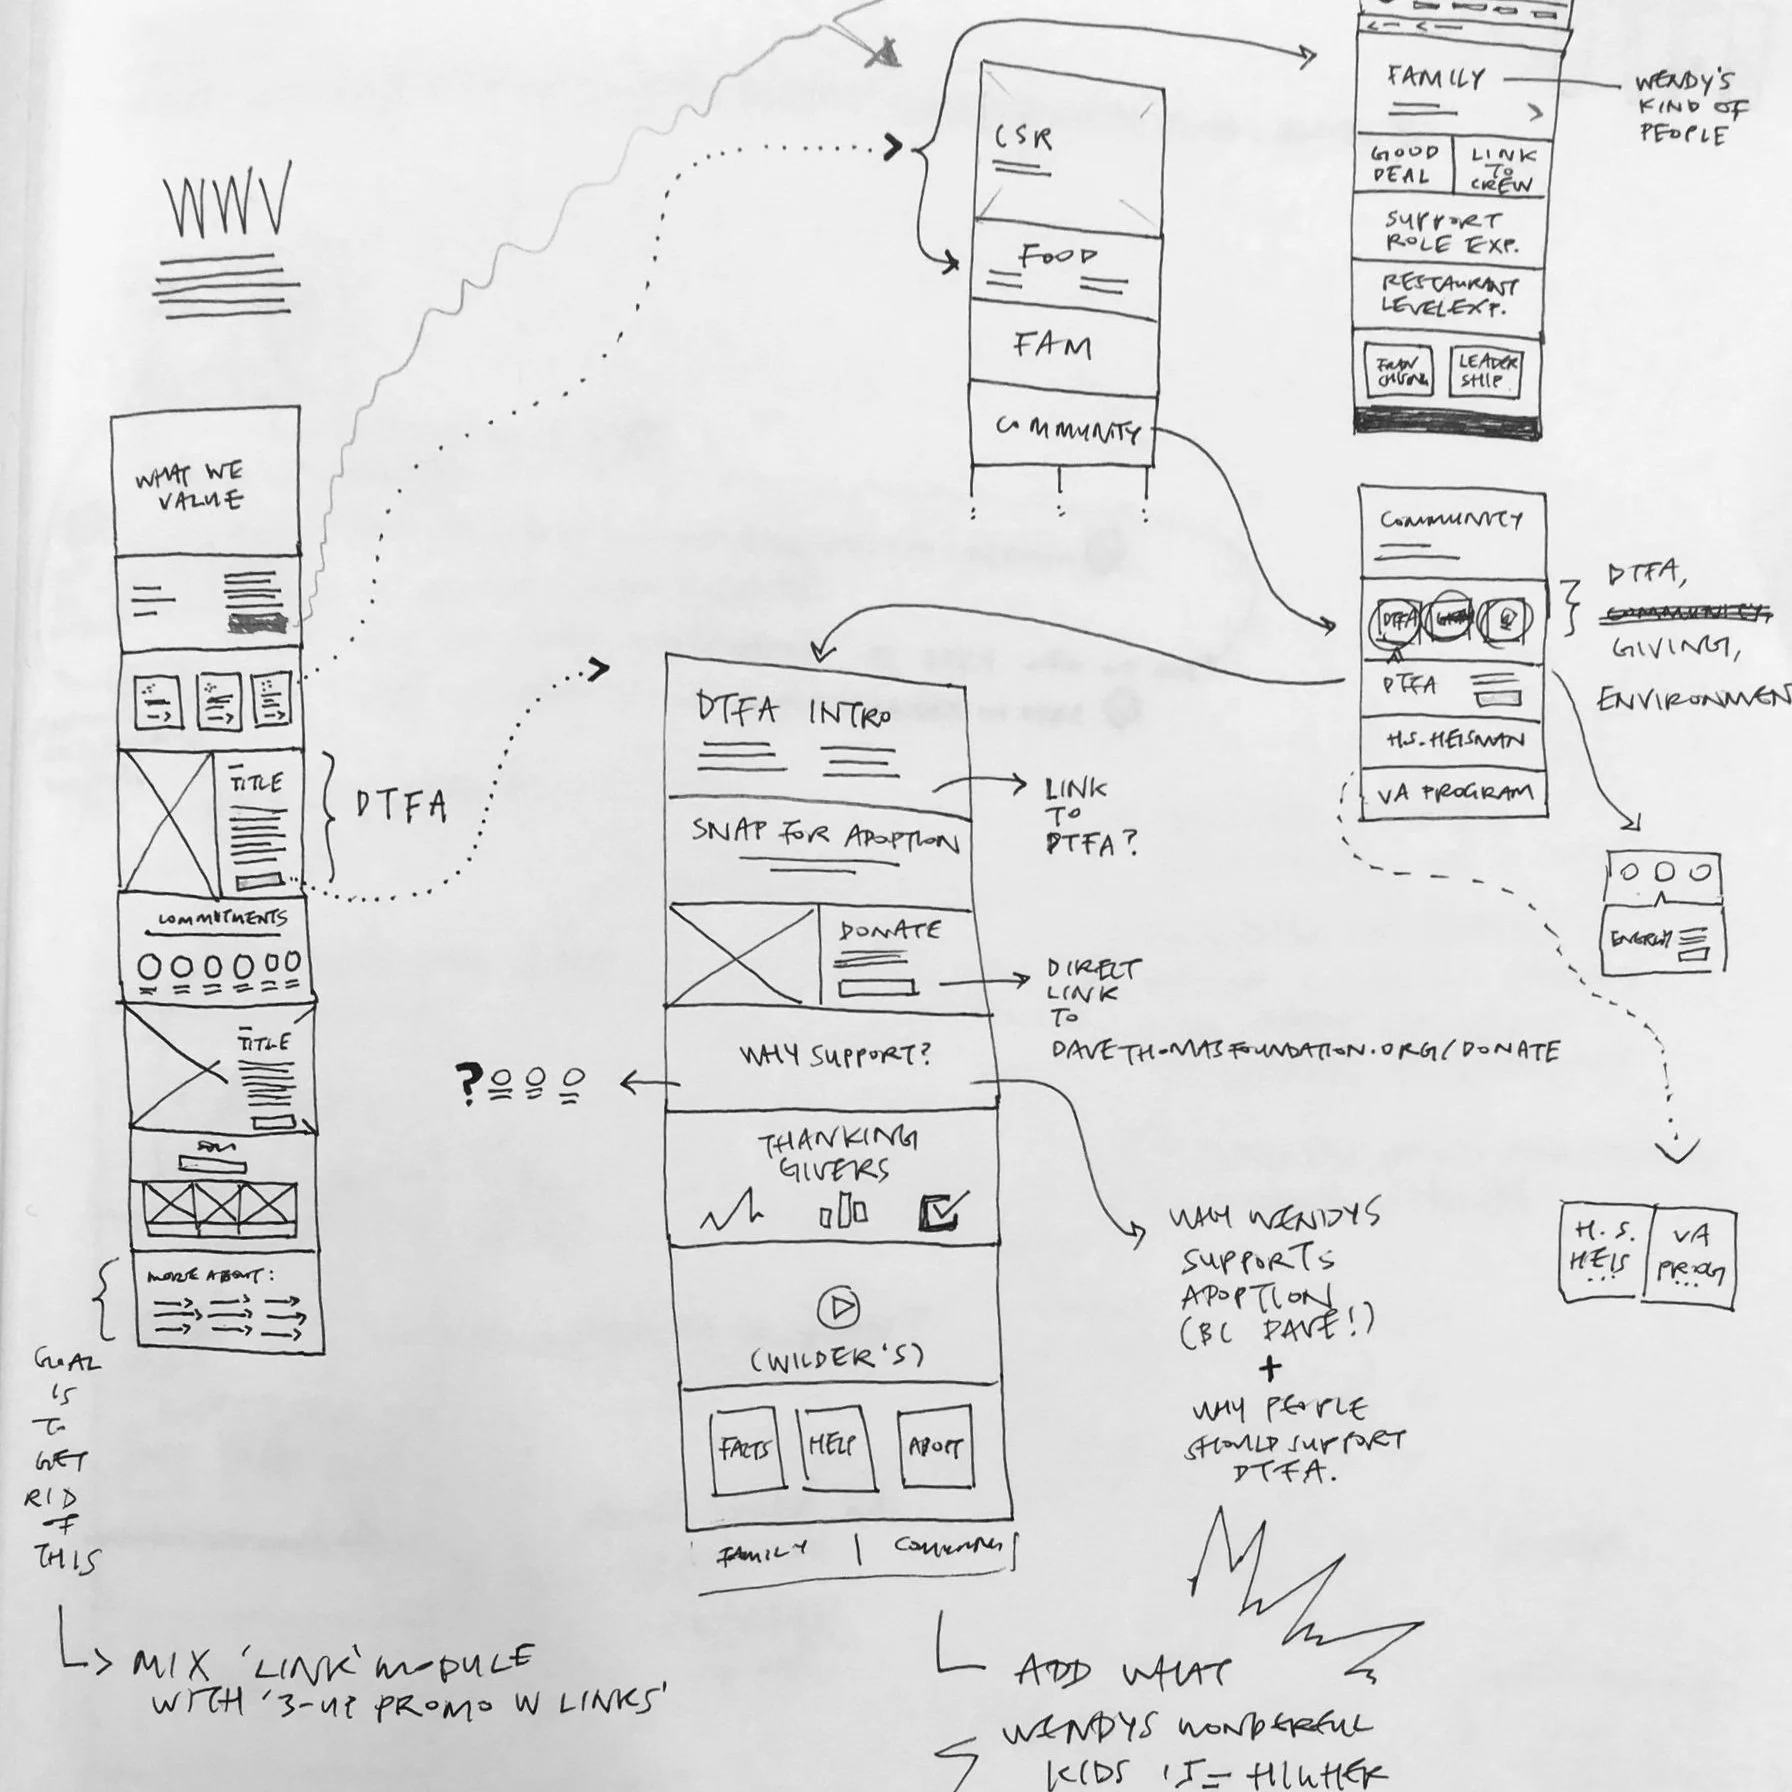 WWV
WHAT WE
VALUE
TITLE
DTFA
COMMITMENTS
TITLE
MORE ABOUT:
GOAL
IS
TO
GET
RID
OF
THIS
MIX 'LINK' MODULE
WITH '3-UP PROMO W LINKS'
CSR
FOOD
FAM
COMMUNITY
FAMILY
WENDY'S
KIND OF
PEOPLE
GOOD
DEAL
LINK
TO
CREW
SUPPORT
ROLE EXP.
RESTAURANT
LEVEL EXP.
LEADER
SHIP
COMMUNITY
DTFA
DTFA,
COMMUNITY,
GIVING,
ENVIRONMEN
DTFA
H.S. HEISMAN
VA PROGRAM
ENERGY
H.S.
HEIS
...
VA
PROG
...
DTFA INTRO
LINK
TO
DTFA?
SNAP FOR ADOPTION
DONATE
DIRECT
LINK
TO
DAVETHOMASFOUNDATION.ORG/DONATE
WHY SUPPORT?
?
THANKING
GIVERS
(WILDER'S)
FACTS
HELP
ADOPT
FAMILY | COMMUNITY
WHY WENDYS
SUPPORTS
ADOPTION
(BC DAVE!)
+
WHY PEOPLE
SHOULD SUPPORT
DTFA.
ADD WHAT
WENDYS WONDERFUL
KIDS IS = HIGHER